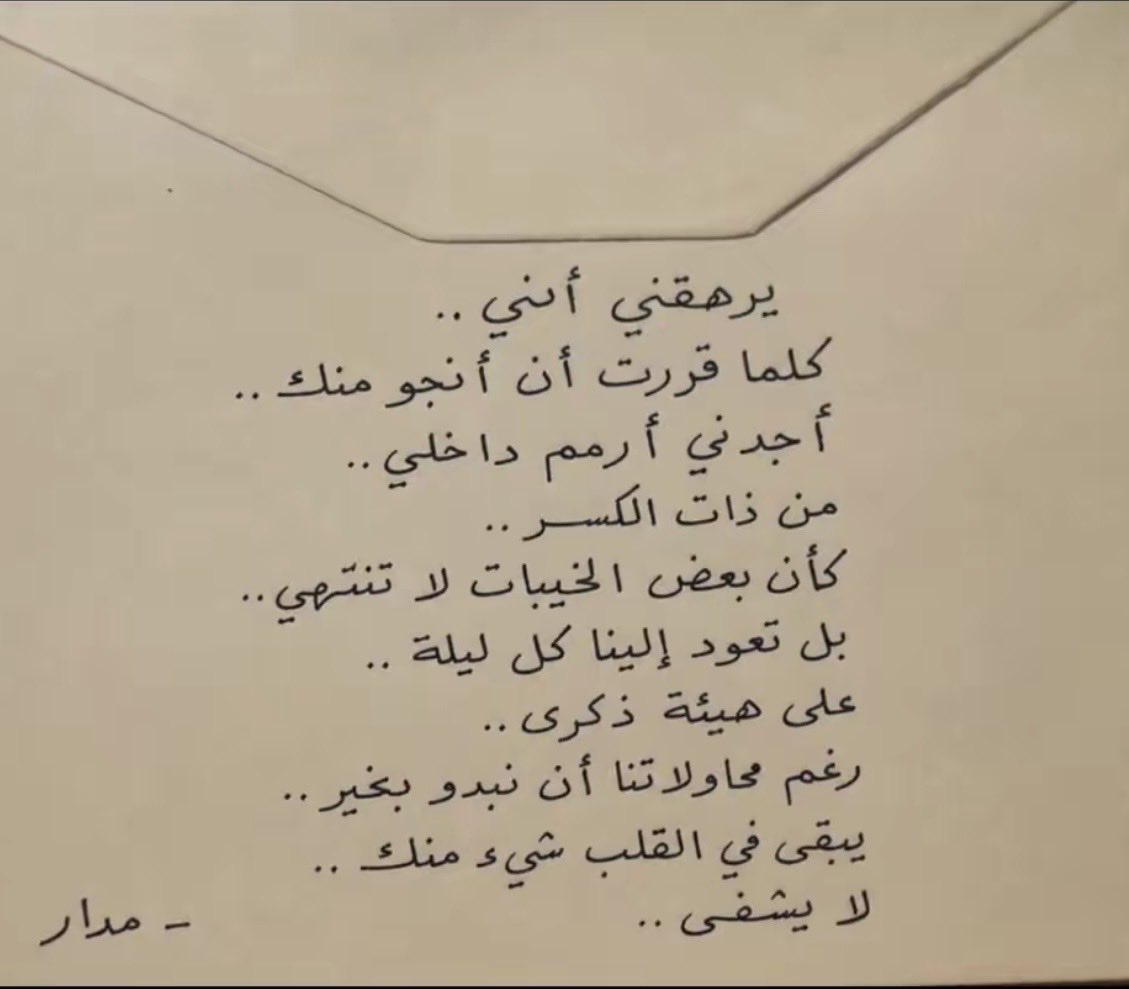 يرهقني أنني ..
كلما قررت أن أنجو منك ..
أجدني أرمم داخلي ..
من ذات الكسر ..
كأن بعض الخيبات لا تنتهي ..
بل تعود إلينا كل ليلة ..
على هيئة ذكرى ..
رغم محاولاتنا أن نبدو بخير ..
يبقى في القلب شيء منك ..
لا يشفى ..
- مدار